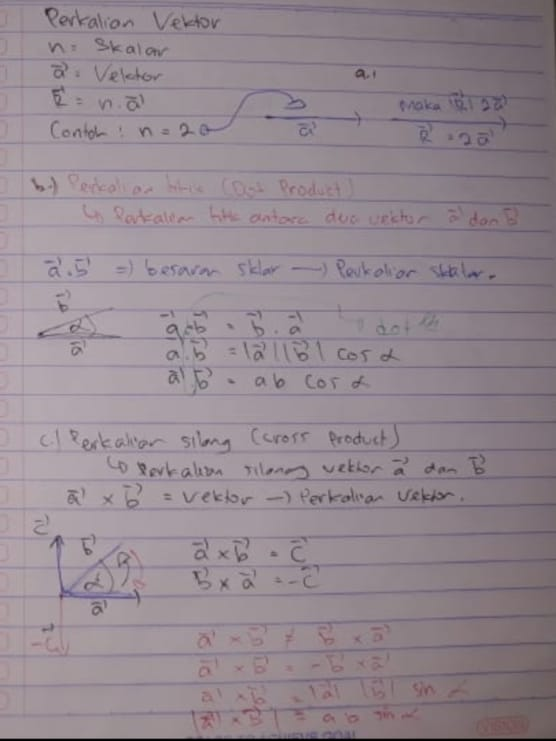 Perkalian Vektor
n = Skalar
a⃗ = Vektor a.)
R⃗ = n . a⃗ maka |R⃗| 2a⃗
Contoh : n = 2 a⃗ R⃗ = 2a⃗
b.) Perkalian titik (Dot Product)
↳ Perkalian titik antara dua vektor a⃗ dan b⃗
a⃗ . b⃗ => besaran sklar —> Perkalian skalar.
b⃗
α
a⃗
a⃗ . b⃗ = b⃗ . a⃗ dot
a⃗ . b⃗ = |a⃗| |b⃗| cos α
a⃗ . b⃗ = ab cos α
c.) Perkalian silang (cross Product)
↳ Perkalian silang vektor a⃗ dan b⃗
a⃗ × b⃗ = vektor —> Perkalian Vektor.
c⃗
b⃗
α
a⃗
-c⃗
a⃗ × b⃗ = c⃗
b⃗ × a⃗ = -c⃗
a⃗ × b⃗ ≠ b⃗ × a⃗
a⃗ × b⃗ = -b⃗ × a⃗
a⃗ × b⃗ = |a⃗| |b⃗| sin α
|a⃗ × b⃗| = ab sin α
VISION